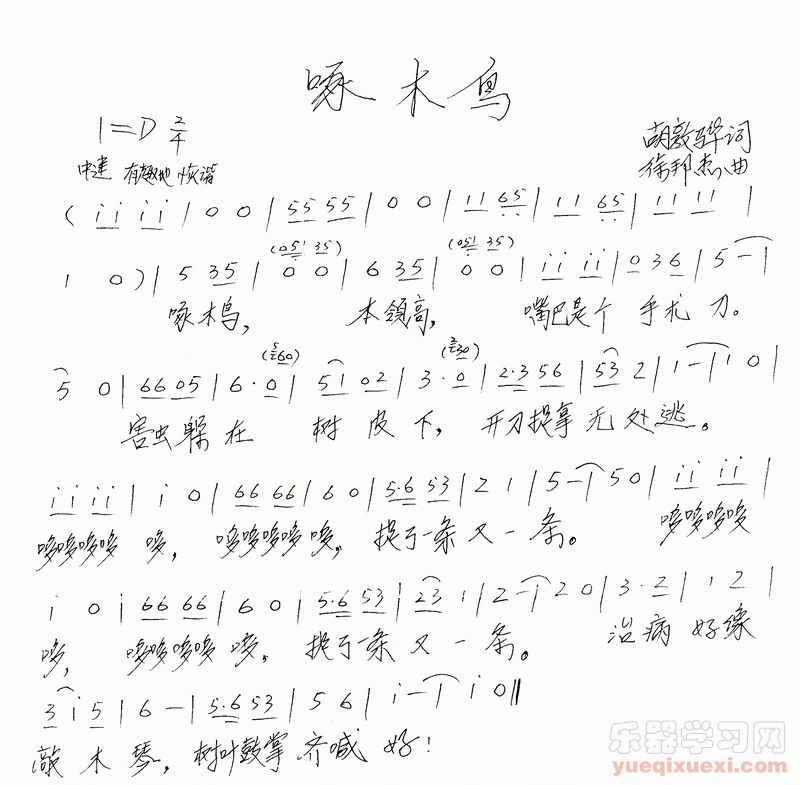 啄木鸟
1=D 2/4
胡敦骅词
中速 有趣地 诙谐
徐邦杰曲
( i i i i | 0 0 | 5 5 5 5 | 0 0 | 1 1 6 5 | 1 1 6 5 | 1 1 1 1 |
(0 5 1 3 5) (0 5 1 3 5)
1 0 ) | 5 3 5 | 0 0 | 6 3 5 | 0 0 | i i i i | 0 3 6 | 5 - |
啄木鸟, 本领高, 嘴巴是个 手术 刀。
5 0 | 6 6 0 5 | 6 · 0 | 5 1 0 2 | 3 · 0 | 2 · 3 5 6 | 5 3 2 | 1 - | 1 0 |
害虫躲在 树 皮 下, 开刀捉拿 无 处 逃。
i i i i | i 0 | 6 6 6 6 | 6 0 | 5 · 6 5 3 | 2 1 | 5 - | 5 0 | i i i i |
哆哆哆哆 哆, 哆哆哆哆 哆, 捉了一条 又 一 条。 哆哆哆哆
i 0 | 6 6 6 6 | 6 0 | 5 · 6 5 3 | 2 3 1 | 2 - | 2 0 | 3 · 2 | 1 2 |
哆, 哆哆哆哆 哆, 捉了一条 又 一 条。 治病 好像
3 i 5 | 6 - | 5 · 6 5 3 | 5 6 | i - | i 0 ||
敲 木 琴, 树叶鼓掌 齐喊 好!
乐器学习网
yueqixuexi.com